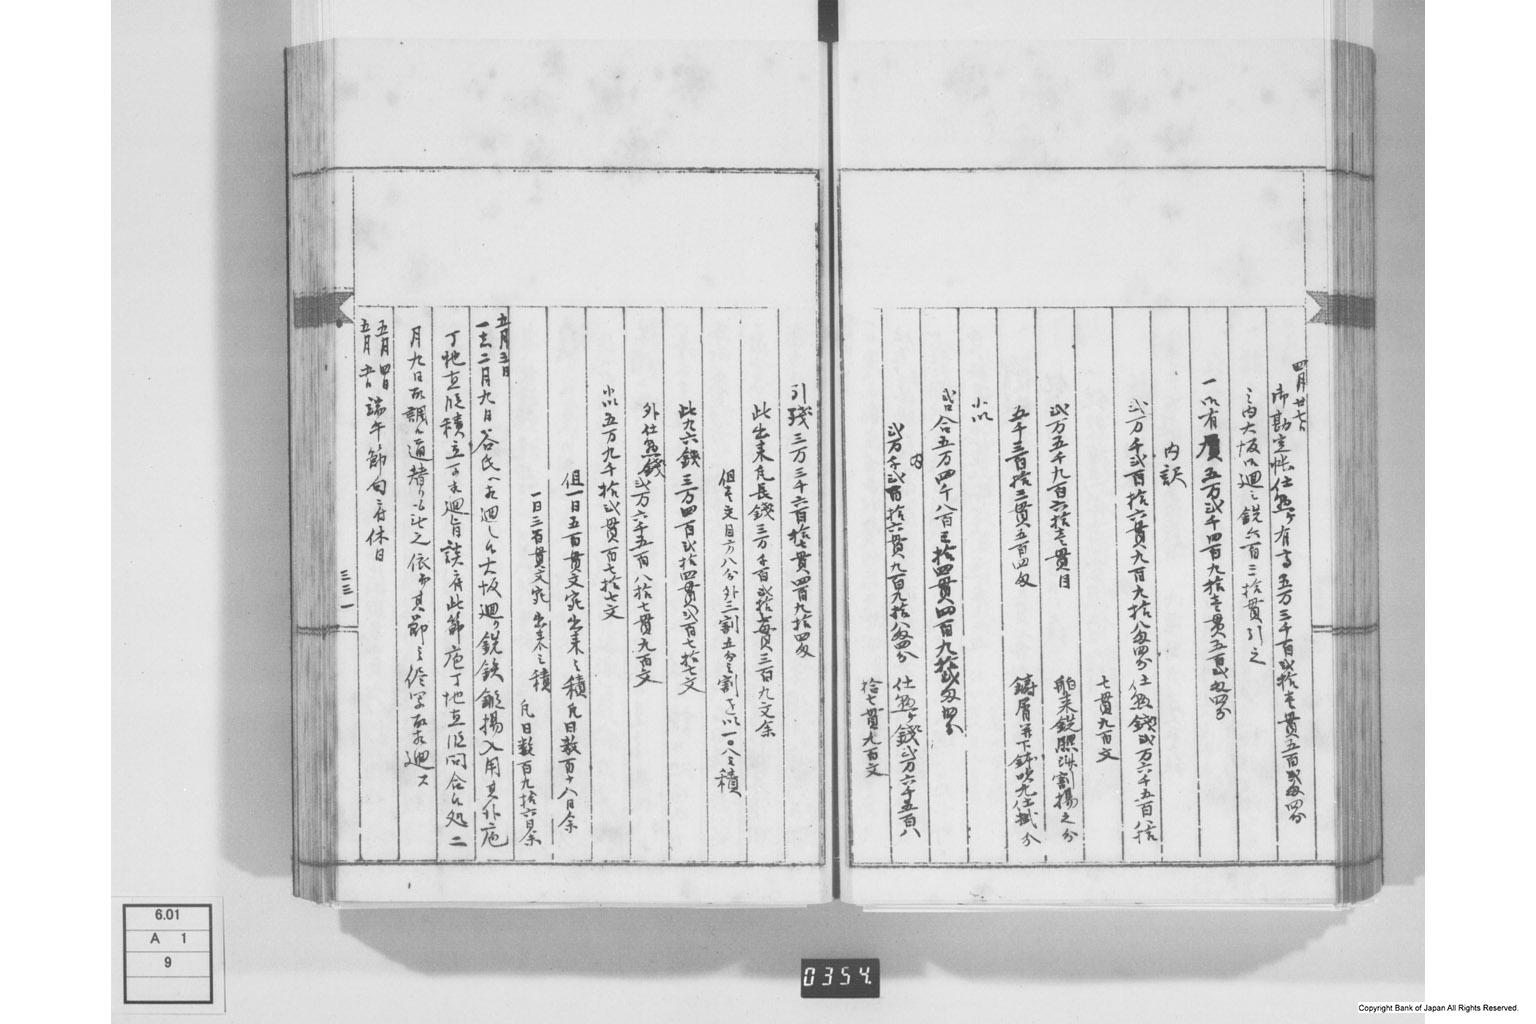 四月廿七日
一御勘定帳仕懸ケ有高五万三千百弐拾壱貫五百弐匁四分
之内大坂御廻之銑六百三拾貫引之
一以有貫五万弐千四百九拾壱貫五百弐匁四分
内訳
弐万千弐百拾六貫九百九拾八匁四分 仕懸ケ銭弐万六千五百八拾
七貫九百文
弐万五千九百六拾壱貫目 舶来銑 割揚之分
五千三百拾三貫五百四匁 鋳屑并下鉢吹九仕掛分
小以
合五万四千八百三拾四貫四百九拾弐匁四分
内
弐万千弐百拾六貫九百九拾八匁四分 仕懸ケ銭弐万六千五百八
拾七貫九百文
引残三万三千六百拾七貫四百九拾四匁
此出来凡長銭三万千百弐拾壱貫三百九文余
但壱文目方八分外三割五分之割を以一〇八之積
此九六銭三万四百弐拾四貫弐百七拾七文
外仕懸銭弐万六千五百八拾七貫九百文
小以五万九千拾弐貫百七拾七文
但一日五百貫文宛出来之積 凡日数百十八日余
一日三百貫文宛出来之積 凡日数百九拾六日余
五月三日
一去二月九日谷氏へ相廻し候大坂廻り銑鉄 揚入用其外庖
丁地直段積立 相廻旨談有此節庖丁地直段問合候処二
月九日取調 道 ニ付 之依而其節之 写 相廻ス
五月四日
五月五日 端午節句ニ付休日
三三一
6.01
A 1
9
0354.
Copyright Bank of Japan All Rights Reserved.